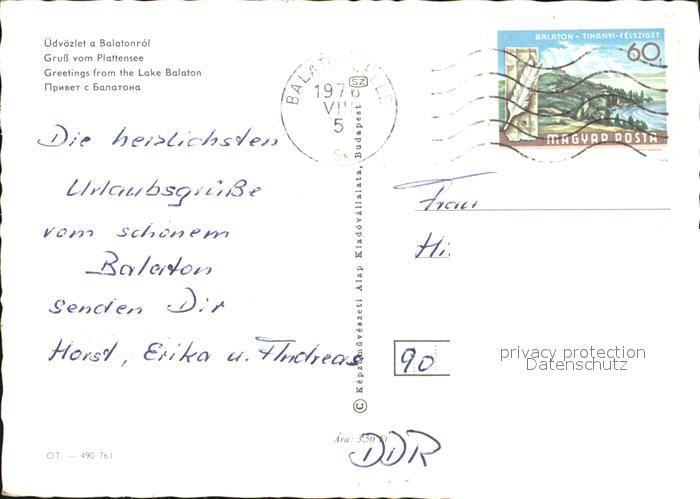 Üdvözlet a Balatonról
Gruß vom Plattensee
Greetings from the Lake Balaton
Привет с Балатона
BALATON – TIHANYI-FÉLSZIGET
60
MAGYAR POSTA
SZ
197
VIII
5
Die herzlichsten
Urlaubsgrüße
vom schönem
Balaton
senden Dir
Horst, Erika u. Andreas
© Képzőművészeti Alap Kiadóvállalata, Budapest
Frau
Hi
90
privacy protection
Datenschutz
DDR
Ára: 3,50 Ft
OT — 490 761